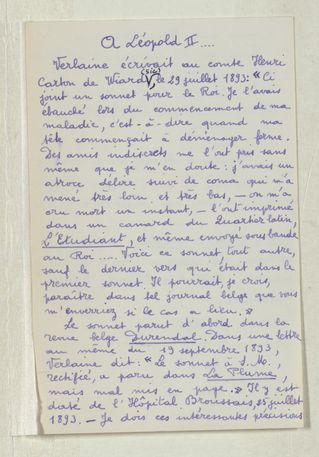 A Léopold II....
Verlaine écrivait au comte Henri
(sic)
Carton de Wiard, le 29 juillet 1893: « Ci
joint un sonnet pour le Roi. Je l'avais
ébauché lors du commencement de ma
maladie, c'est-à-dire quand ma
tête commençait à déménager ferme.
Des amis indiscrets me l'ont pris sans
même que je m'en doute: j'avais un
atroce délire suivi de coma qui m'a
mené très loin et très bas, — on m'a
cru mort un instant, — l'ont imprimé
dans un canard du Quartier latin,
l'Etudiant, et même envoyé sous bande
au Roi..... Voici ce sonnet tout autre,
sauf le dernier vers qui était dans le
premier sonnet. Il pourrait, je crois,
paraître dans tel journal belge que vous
m'enverriez si le cas a lieu. »
Le sonnet parut d'abord dans la
revue belge Durendal. Dans une lettre
au même du 19 septembre 1893,
Verlaine dit: « Le sonnet à S.M.,
rectifié, a paru dans La Plume,
mais mal mis en page. » Il y est
daté de l'Hôpital Broussais, 25 juillet
1893. — Je dois ces intéressantes précisions